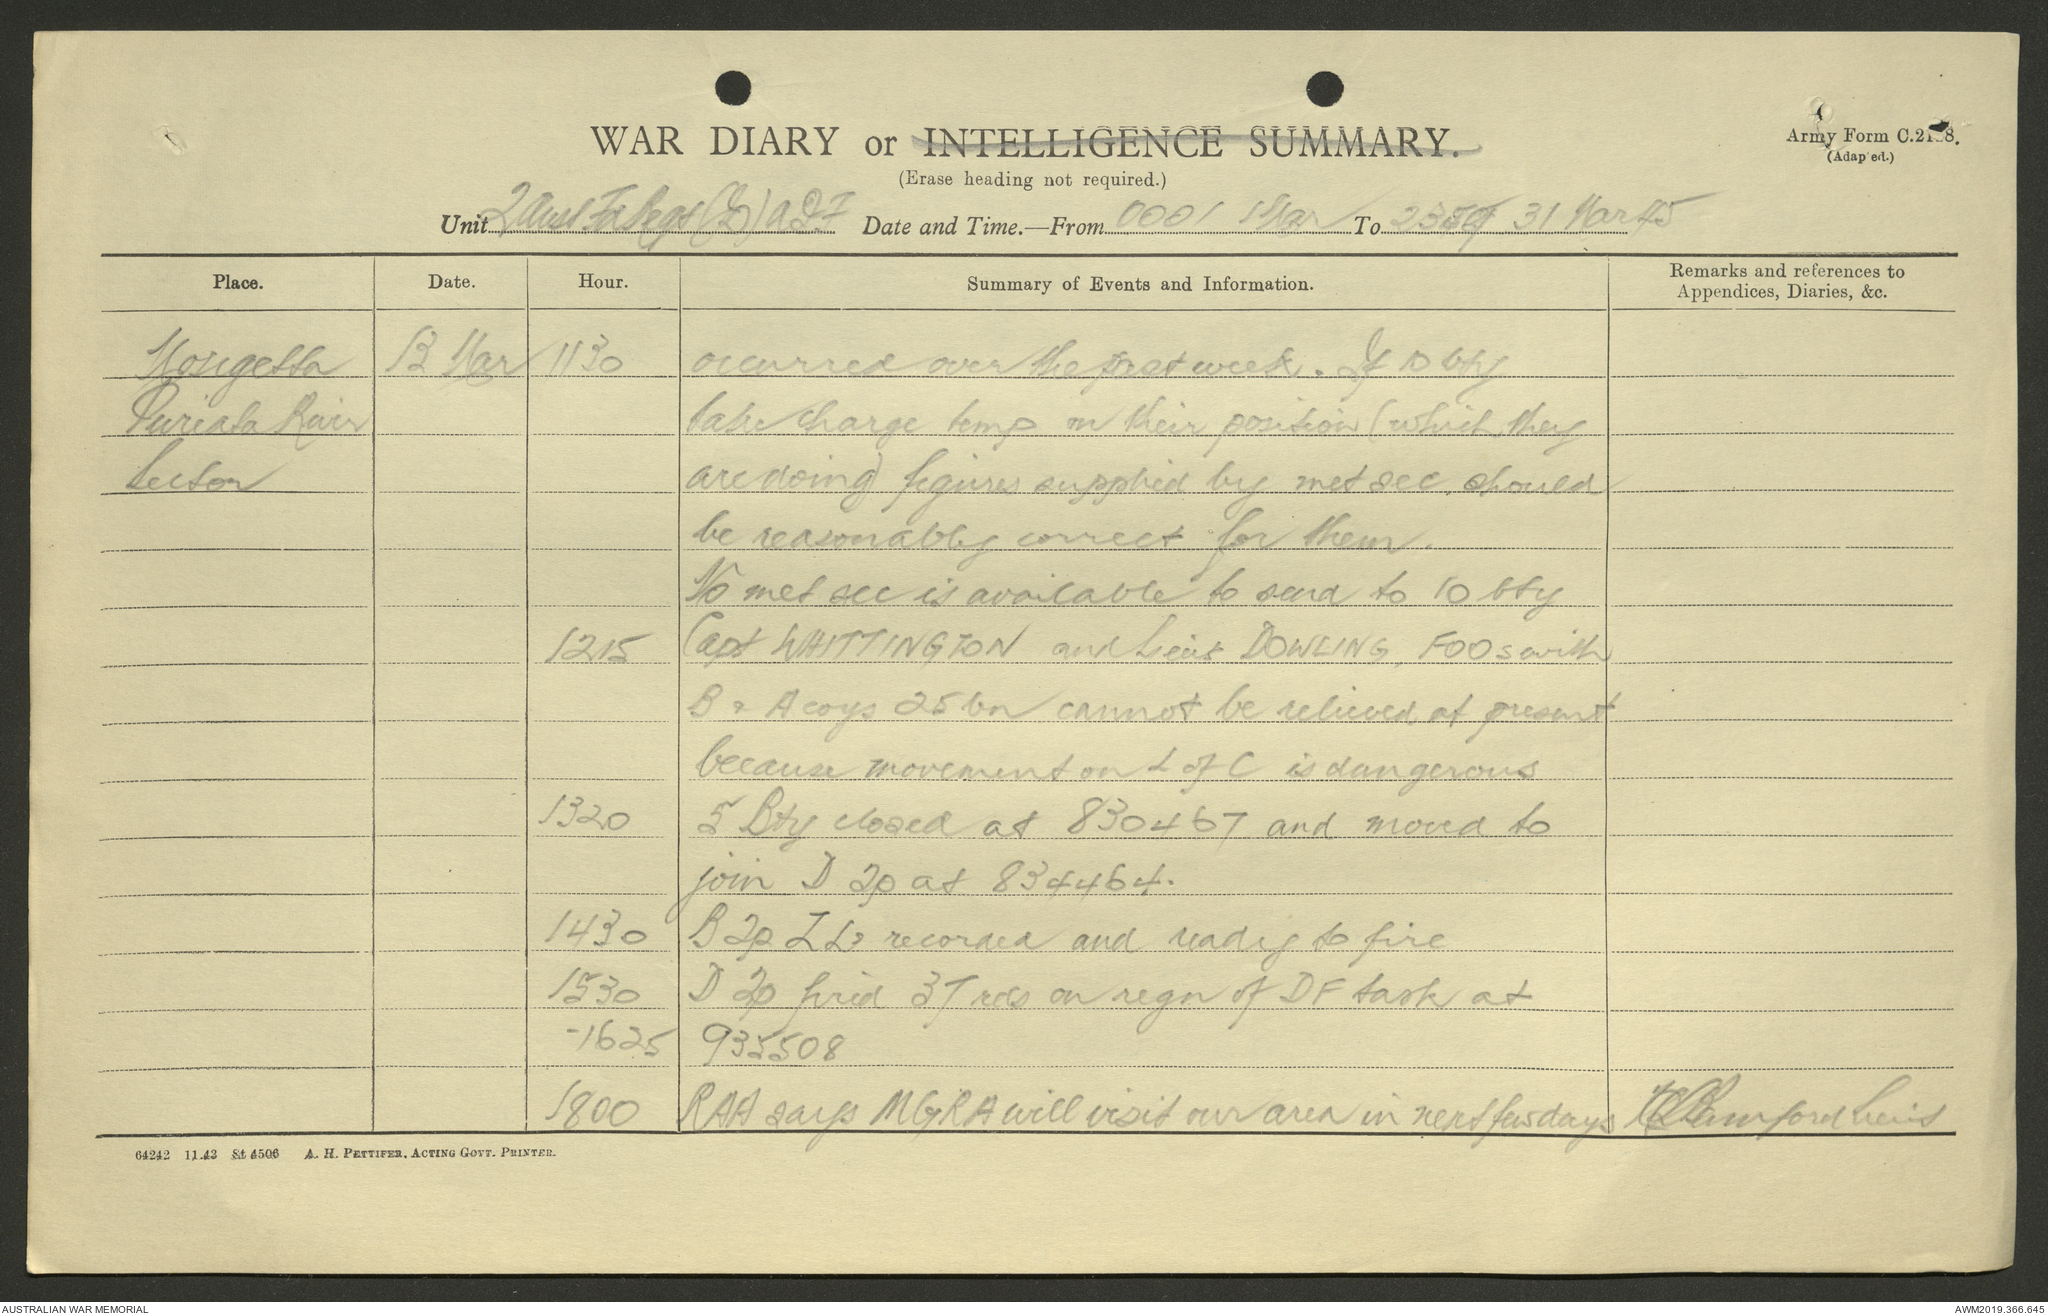 WAR DIARY or INTELLIGENCE SUMMARY.
Army Form C.2118.
(Adapted.)
(Erase heading not required.)
Unit 2 Aust Fd Regt () AIF Date and Time.—From 0001 1 Mar To 2359 31 Mar 45
Place. Date. Hour. Summary of Events and Information. Remarks and references to
Appendices, Diaries, &c.
Mosigetta 13 Mar 1130 occurred over the past week. If 10 bty
Puriata River take charge temp on their position (which they
Sector are doing) figures supplied by met sec. should
be reasonably correct for them.
No met sec is available to send to 10 bty
1215 Capt WHITTINGTON and Lieut DOWLING, FOOs with
B & A coys 25 bn cannot be relieved at present
because movement on L of C is dangerous
1320 5 Bty closed at 830467 and moved to
join D Tp at 834464.
1430 B Tp recorded and ready to fire
1530 D Tp fired 37 rds on regn of DF task at
-1625 935508
1800 RAA says MGRA will visit our area in next few days Bamford Lieut
64242 11.43 St 4506 A. H. PETTIFER, ACTING GOVT. PRINTER.
AUSTRALIAN WAR MEMORIAL
AWM2019.366.645